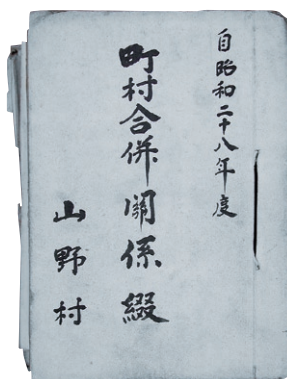 自昭和二十八年度
町村合併関係綴
山野村